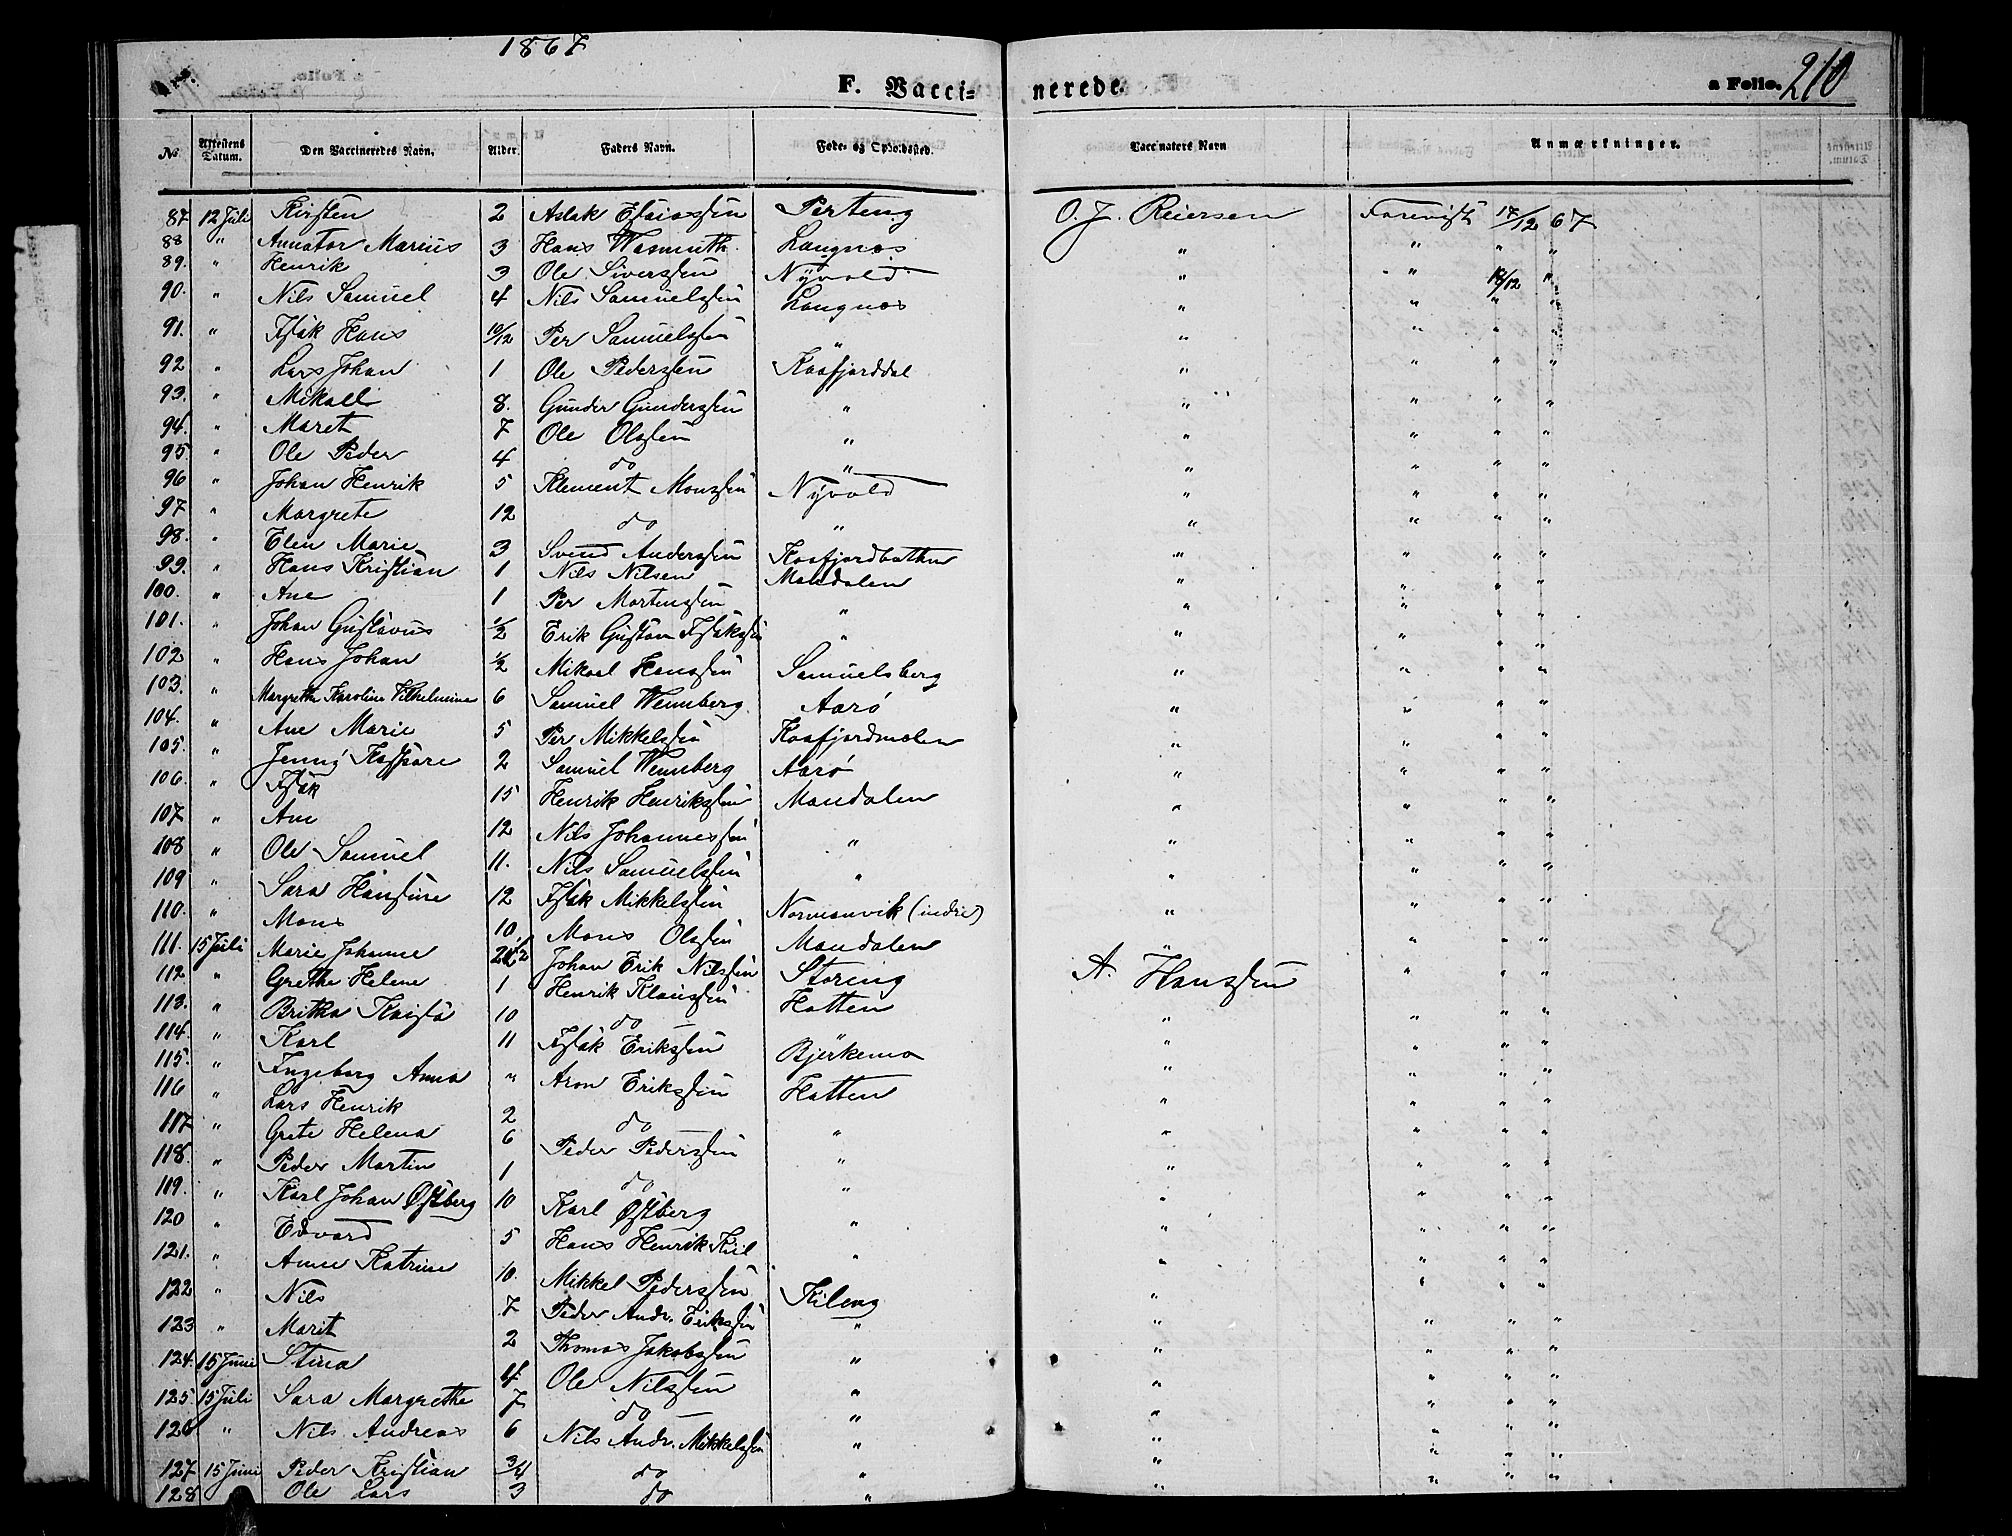 1867
F. Vaccinerede. a Folio. 210
No. Attestens Datum. Den Vaccineredes Navn. Alder. Faders Navn. Føde- og Opholdssted. Vaccinators Navn Anmærkninger.
87. 12 Juli Kirsten 2 Aslak Esaiassen Perteng O. J. Reiersen Forevist 17/12 67
88 " Annator Marius 3 Hans Wasmuth Langnæs " " " "
89. " Henrik 3 Ole Siverssen Nyvold " " 12/12 "
90. " Nils Samuel 4 Nils Samuelssen Langnæs " " " "
91. " Isak Hans 10/12 Per Samuelssen " " " " "
92 " Lars Johan 1 Ole Pederssen Kaafjorddal " " " "
93. " Mikael 8. Gunder Gunderssen " " " " "
94. " Maret 7 Ole Olssen " " " " "
95. " Ole Peder 4 do " " " " "
96 " Johan Henrik 5 Klement Monssen Nyvold " " " "
97 " Margrete 12 do " " " " "
98. " Elen Marie 3 Svend Anderssen Kaafjordbotten " " " "
99. " Hans Kristian 1 Nils Nilsen Mandalen " " " "
100. " Ane 1 Per Mortenssen " " " " "
101. " Johan Gustavus 1/2 Erik Gustav Isakssen " " " " "
102 " Hans Johan 1/2 Mikael Hanssen Samuelsberg " " " "
103. " Margrethe Karoline Vilhelmina 6 Samuel Wennberg Aarø " " " "
104. " Ane Marie 5 Per Mikkelssen Kaafjordmælen " " " "
105. " Jenny Kaspare 2 Samuel Wennberg Aarø " " " "
106. " Isak 15 Henrik Henrikssen Mandalen " " " "
107 " Ane 12 Nils Johannessen " " " " "
108 " Ole Samuel 11. Nils Samuelssen " " " " "
109 " Sara Hansine 12 Isak Mikkelssen Normanvik (indre) " " " "
110. " Mons 10. Mons Olssen Mandalen " " " "
111. 15 Juli Marie Johanne Johan Erik Nilssen Storeng A. Hanssen " " "
112 " Grethe Helene 1 Henrik Klaussen Hatten " " " "
113. " Britha Kaisa 10 do " " " "
114. " Karl 11 Isak Erikssen Bjerkemo " " " "
115. " Ingeborg Anna " Aron Erikssen Hatten " " " "
116 " Lars Henrik 2 do " " " " "
117 " Grete Helena 6 Peder Pederssen " " " " "
118. " Peder Martin 1 do " " " " "
119. " Karl Johan Østberg 10 Karl Østberg " " " " "
120 " Edvard 5 Hans Henrik Kiil " " " " "
121. " Anne Katrine 10. Mikkel Pederssen Kileng " " " "
122 " Nils 7 Peder Andr. Erikssen " " " " "
123 " Marit 2 Thomas Jakobssen " " " " "
124. 15 Juni Stina 4 Ole Nilssen " " " " "
125 15 Juli Sara Margrethe 7 do " " " " "
126 " Nils Andreas 6 Nils Andr. Mikkelssen " " " " "
127 15 Juni Peder Kristian 3/4 do " " " " "
128 Ole Lars 3 do " "